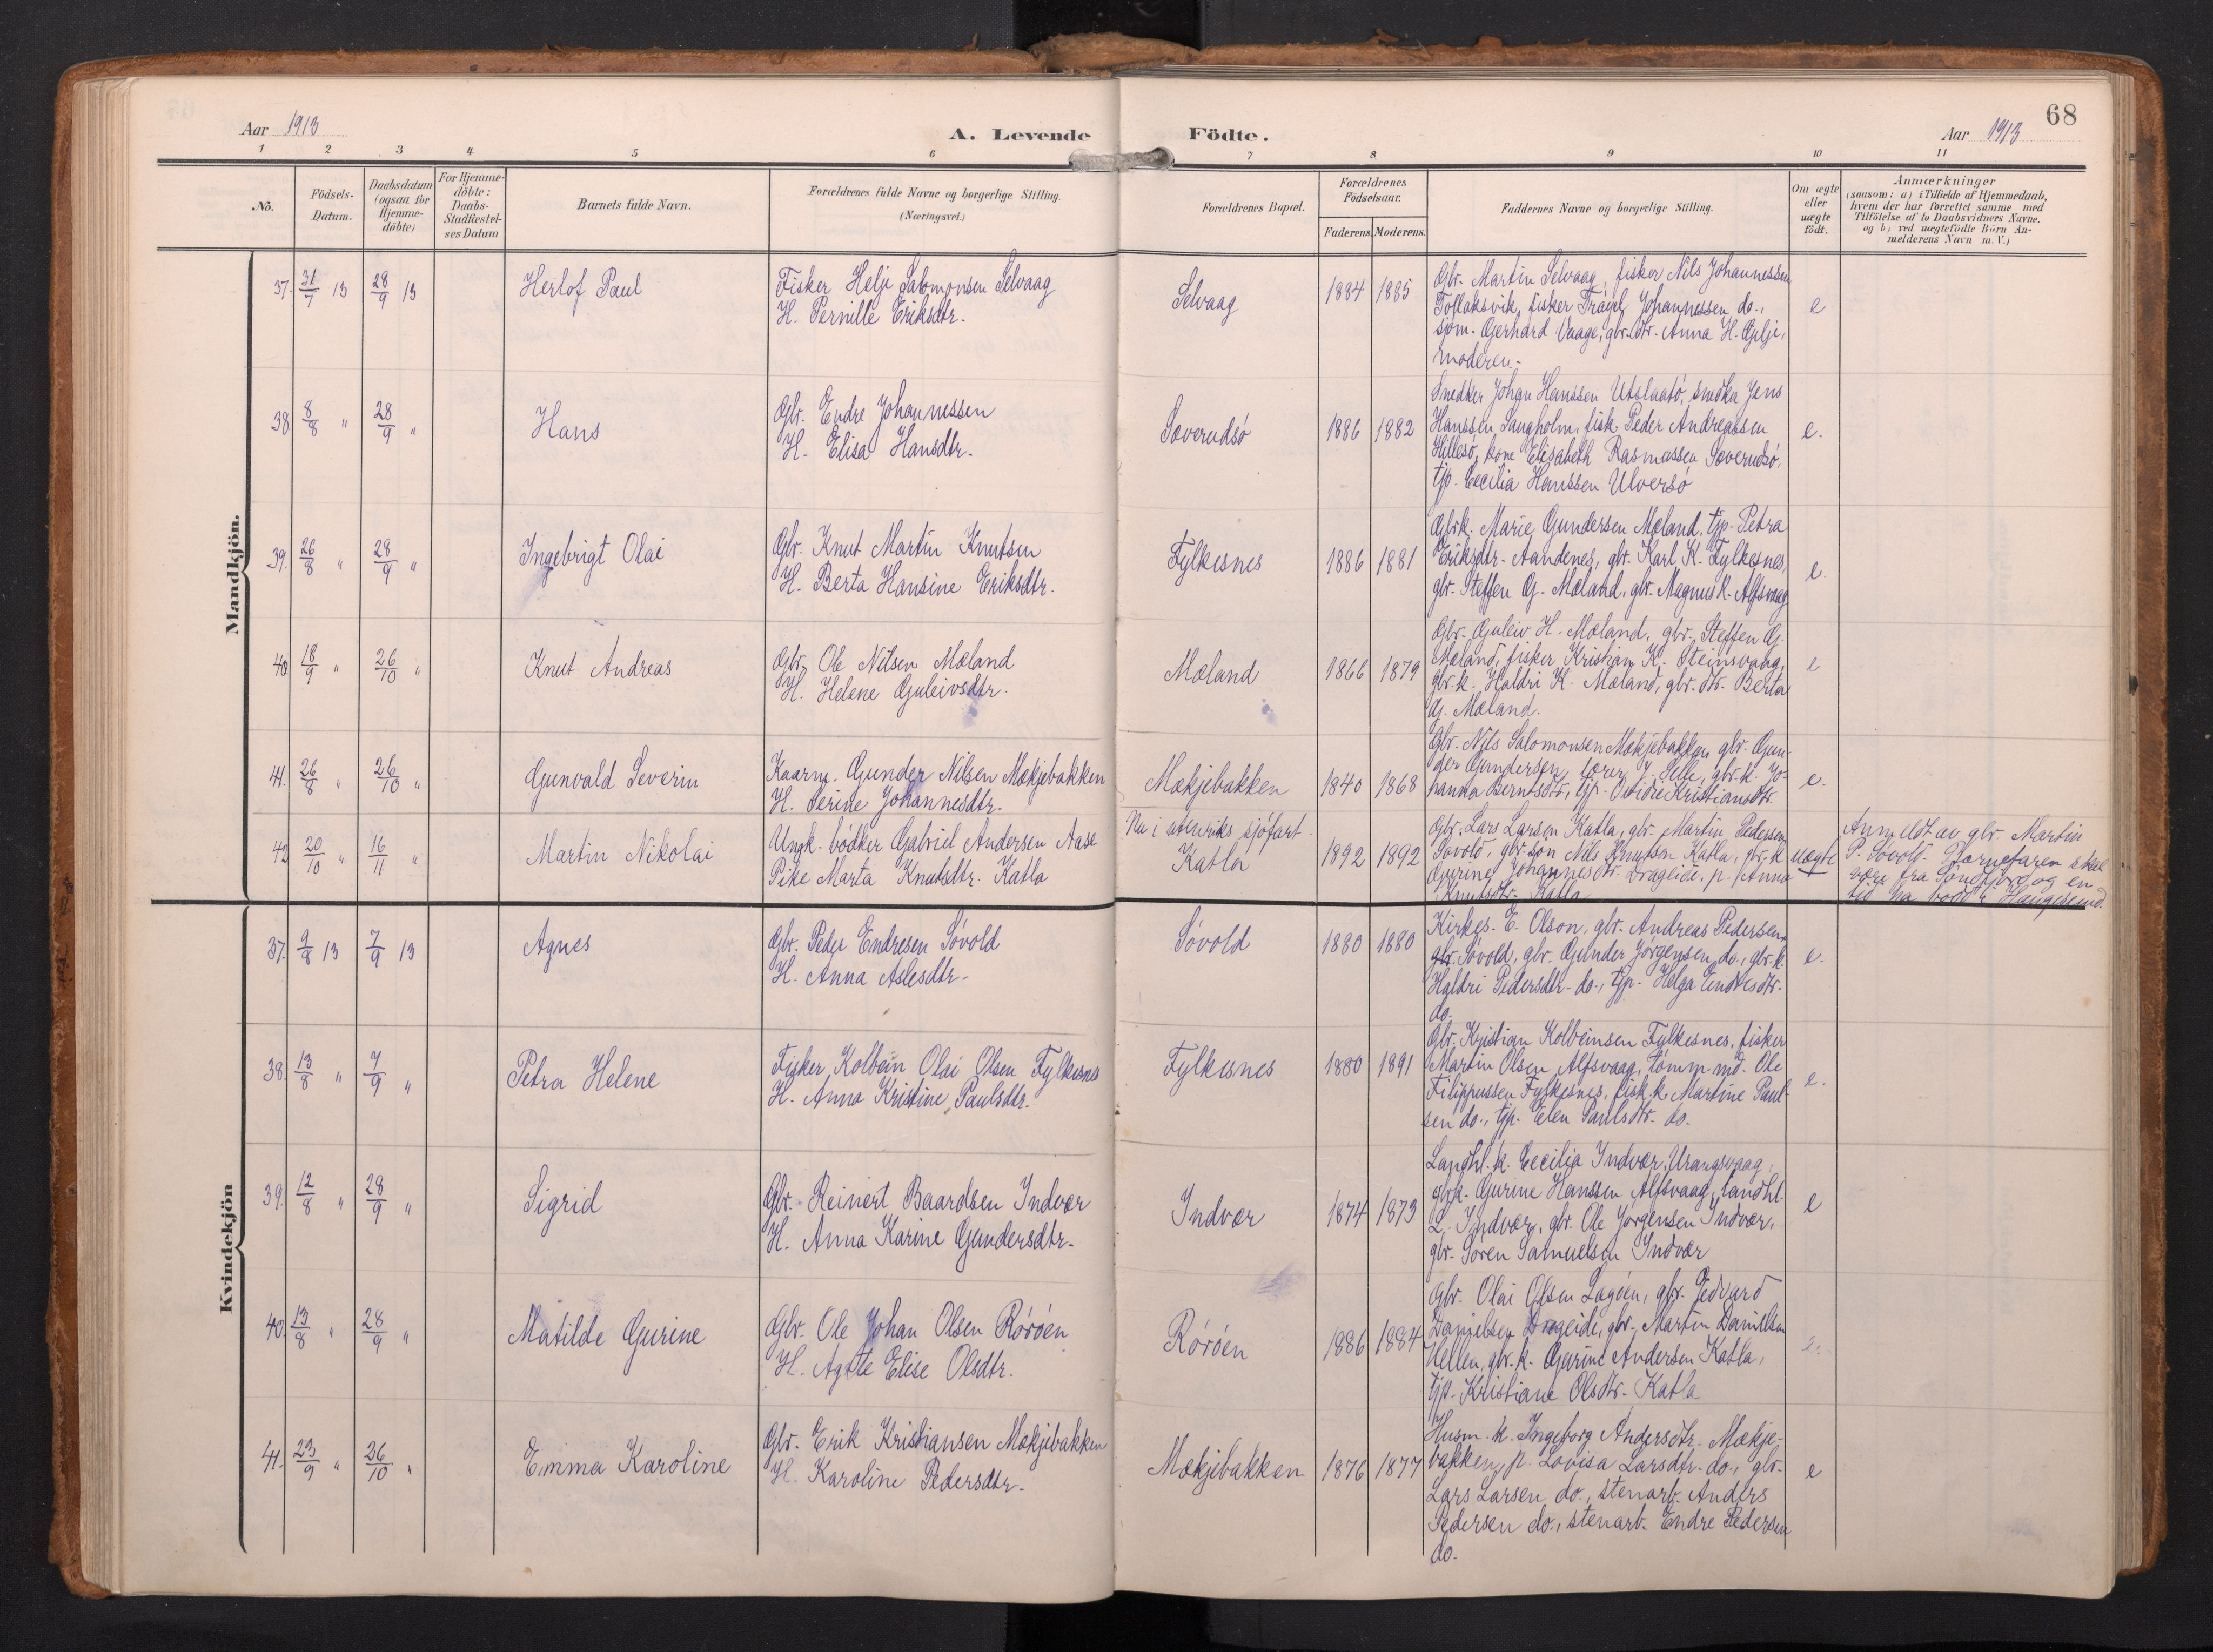 68
Aar 1913
A. Levende Födte.
Aar 1913
1 2 3 4 5 6 7 8 9 10 11
No.
Födsels-
Datum.
Daabsdatum
(ogsaa for
Hjemme-
döbte)
For Hjemme-
döbte:
Daabs-
Stadfæstel-
ses Datum
Barnets fulde Navn.
Forældrenes fulde Navne og borgerlige Stilling.
(Næringsvei.)
Forældrenes Bopæl.
Forældrenes
Födselsaar.
Faderens. Moderens.
Faddernes Navne og borgerlige Stilling.
Om ægte
eller
uægte
født.
Anmærkninger
(saasom: a) i Tilfælde af Hjemmedaab,
hvem der har forrettet samme med
Tilföielse af to Daabsvidners Navne,
og b) ved uægtefödte Börn An-
melderens Navn m. V.)
Mandkjön.
37. 31/7 13 28/9 13
Herlof Paul
Fisker Helje Salomonsen Selvaag
H. Pernille Eriksdtr.
Selvaag
1884 1885
Gbr. Martin Selvaag, fisker Nils Johannessen
Tollaksvik, fisker Johannessen do.,
sjöm. Gerhard Vaage, gbr.dtr. Anna H. Gilje,
moderen.
e
38 8/8 " 28/9 "
Hans
Gbr. Endre Johannessen
H. Elisa Hansdtr.
Sæverudsö
1886 1882
Snedker Johan Hanssen Utslaatö, snedker Jens
Hanssen Langholm, fisk. Peder Andreassen
Hillesö, kone Elisabeth Rasmussen Sæverudsö,
tjp. Cecilia Hanssen Ulversö
e.
39. 26/8 " 28/9 "
Ingebrigt Olai
Gbr. Knut Martin Knutsen
H. Berta Hansine Eriksdtr.
Fylkesnes
1886 1881
Gbrk. Marie Gundersen Mæland, tjp. Petra
Eriksdtr. Aandenes, gbr. Karl K. Fylkesnes,
gbr. Steffen G. Mæland, gbr. Magnus K. Alfsvaag
e.
40. 18/9 " 26/10 "
Knut Andreas
Gbr. Ole Nilsen Mæland
H. Helene Guleivsdtr.
Mæland
1866 1879
Gbr. Guleiv H. Mæland, gbr. Steffen G.
Mæland, fisker Kristian K. Steinsvaag,
gbr.k. Haldri K. Mæland, gbr.dtr. Berta
G. Mæland.
e
41. 26/8 " 26/10 "
Gunvald Severin
Kaarm. Gunder Nilsen Mækjebakken
H. Serine Johannesdtr.
Mækjebakken
1840 1868
Gbr. Nils Salomonsen Mækjebakken, gbr. Gun-
der Gundersen, lærer J. Selle, gbr.k. Jo-
hanna Berntsdtr., tjp. Kristiansdtr.
e.
42 20/10 " 16/11 "
Martin Nikolai
Ungk. bödker Gabriel Andersen Aase
Pike Marta Knutsdtr. Katla
Nu i utenriks sjöfart
Katla
1892 1892
Gbr. Lars Larsen Katla, gbr. Martin Pedersen
Sövold, gbr.sön Nils Knutsen Katla, gbr.k.
Gurine Johannesdtr. Drageide, p. Anna
Knutsdtr. Katla
uægte
Anmeldt av gbr. Martin
P. Sövold. Barnefaren skal
være fra Söndfjord og en
tid ha bodd i Haugesund.
Kvindekjön
37. 9/8 13 7/9 13
Agnes
Gbr. Peder Endresen Sövold
H. Anna Aslesdtr.
Sövold
1880 1880
Kirkes. E. Olson, gbr. Andreas Pedersen
gbr. Sövold, gbr. Gunder Jörgensen do., gbr.k.
Haldri Pedersdtr. do., tjp. Helga Endresdtr.
do.
e.
38. 13/8 " 7/9 "
Petra Helene
Fisker Kolbein Olai Olsen Fylkesnes
H. Anna Kristine Paulsdtr.
Fylkesnes
1880 1891
Gbr. Kristian Kolbeinsen Fylkesnes, fisker
Martin Olsen Alfsvaag, tömm.md. Ole
Filippussen Fylkesnes, fisk.k. Martine Paul-
sen do., tjp. Elen Paulsdtr. do.
e.
39. 12/8 " 28/9 "
Sigrid
Gbr. Reinert Baardsen Indvær
H. Anna Karine Gundersdtr.
Indvær
1874 1873
Landhl.k. Cecilia Indvær, Urangsvaag,
gbr.k. Gurine Hanssen Alfsvaag, landhl.
L. Indvær, gbr. Ole Jörgensen Indvær,
gbr. Sören Samuelsen Indvær
e
40. 13/8 " 28/9 "
Matilde Gurine
Gbr. Ole Johan Olsen Röröen
H. Agate Elise Olsdtr.
Röröen
1886 1884
Gbr. Olai Olsen Lagöen, gbr. Jedvard
Danielsen Drageide, gbr. Martin Danielsen
Hellen, gbr.k. Gurine Andersen Katla,
tjp. Kristiane Olsdtr. Katla
e.
41. 23/9 " 26/10 "
Emma Karoline
Gbr. Erik Kristiansen Mækjebakken
H. Karoline Pedersdtr.
Mækjebakken
1876 1877
Husm.k. Ingeborg Andersdtr. Mækje-
bakken, p. Lovisa Larsdtr. do., gbr.
Lars Larsen do., stenarb. Anders
Pedersen do., stenarb. Endre Pedersen
do.
e